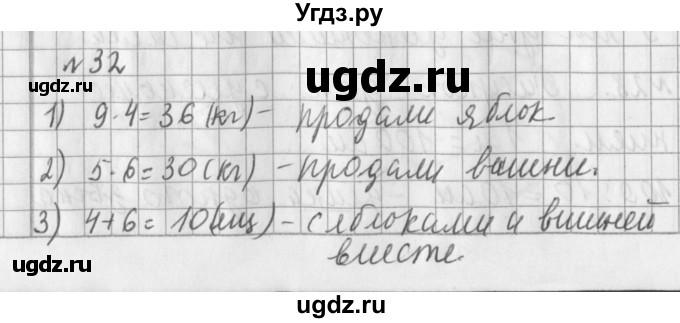 Угдз.ру
№32
ugdz.ru
1) 9·4=36(кг)- продали яблок
2) 5·6=30(кг) -продали вишни.
ugdz.ru
3) 4+6=10(ящ)-с яблоками и вишней
вместе.
ugdz.ru
ugdz.ru
ugdz.ru